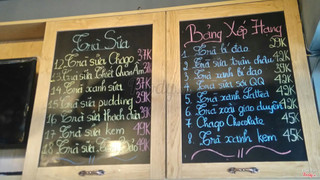 Trà Sữa
12. Trà sữa Chago 37K
13. Trà sữa Thiết Quan Âm
14. Trà xanh sữa 37K
15. Trà sữa pudding 39K
16. Trà sữa thạch dừa 39K
17. Trà sữa kem 49K
18. Trà sữa 49K
Bảng Xếp Hạng
1. Trà bí đao 29K
2. Trà sữa trân châu
3. Trà xanh bí đao 39K
4. Trà sữa QQ 42K
5. Trà xanh Latte
6. Trà xoài giao duyên 42K
7. Chago Chocolate 45K
8. Trà xanh kem 45K